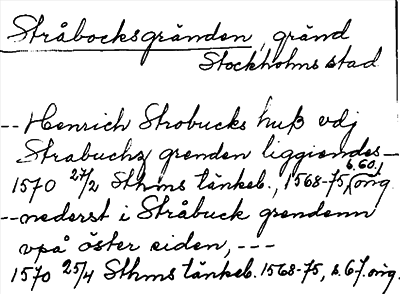 Stråbocksgränden, gränd
Stockholms stad
-- Henrich Strobucks huß vdj
Strabuchz grenden liggiendes --
1570 27/2 Sthms tänkeb., 1568-75, s. 60. orig.
-- nederst i Stråbuck grendenn
vpå öster siden, ---
1570 25/4 Sthms tänkeb. 1568-75, s. 67. orig.